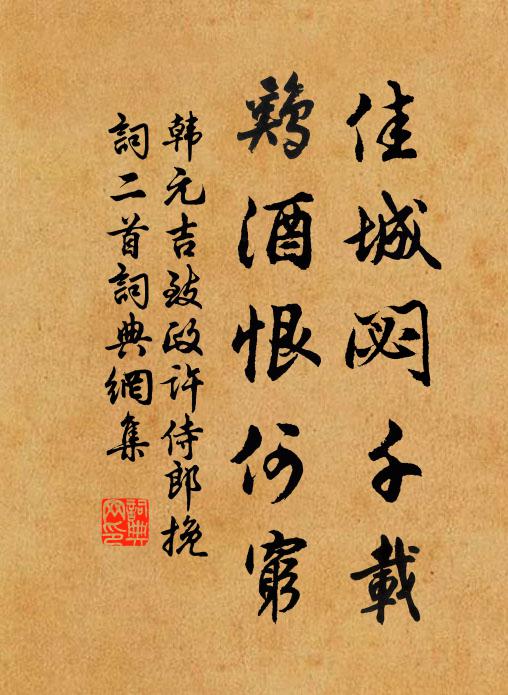 佳城閟千載
鷄酒恨何窮
韩元吉致政许侍郎挽
詞二首詞典網集
詞典
网印